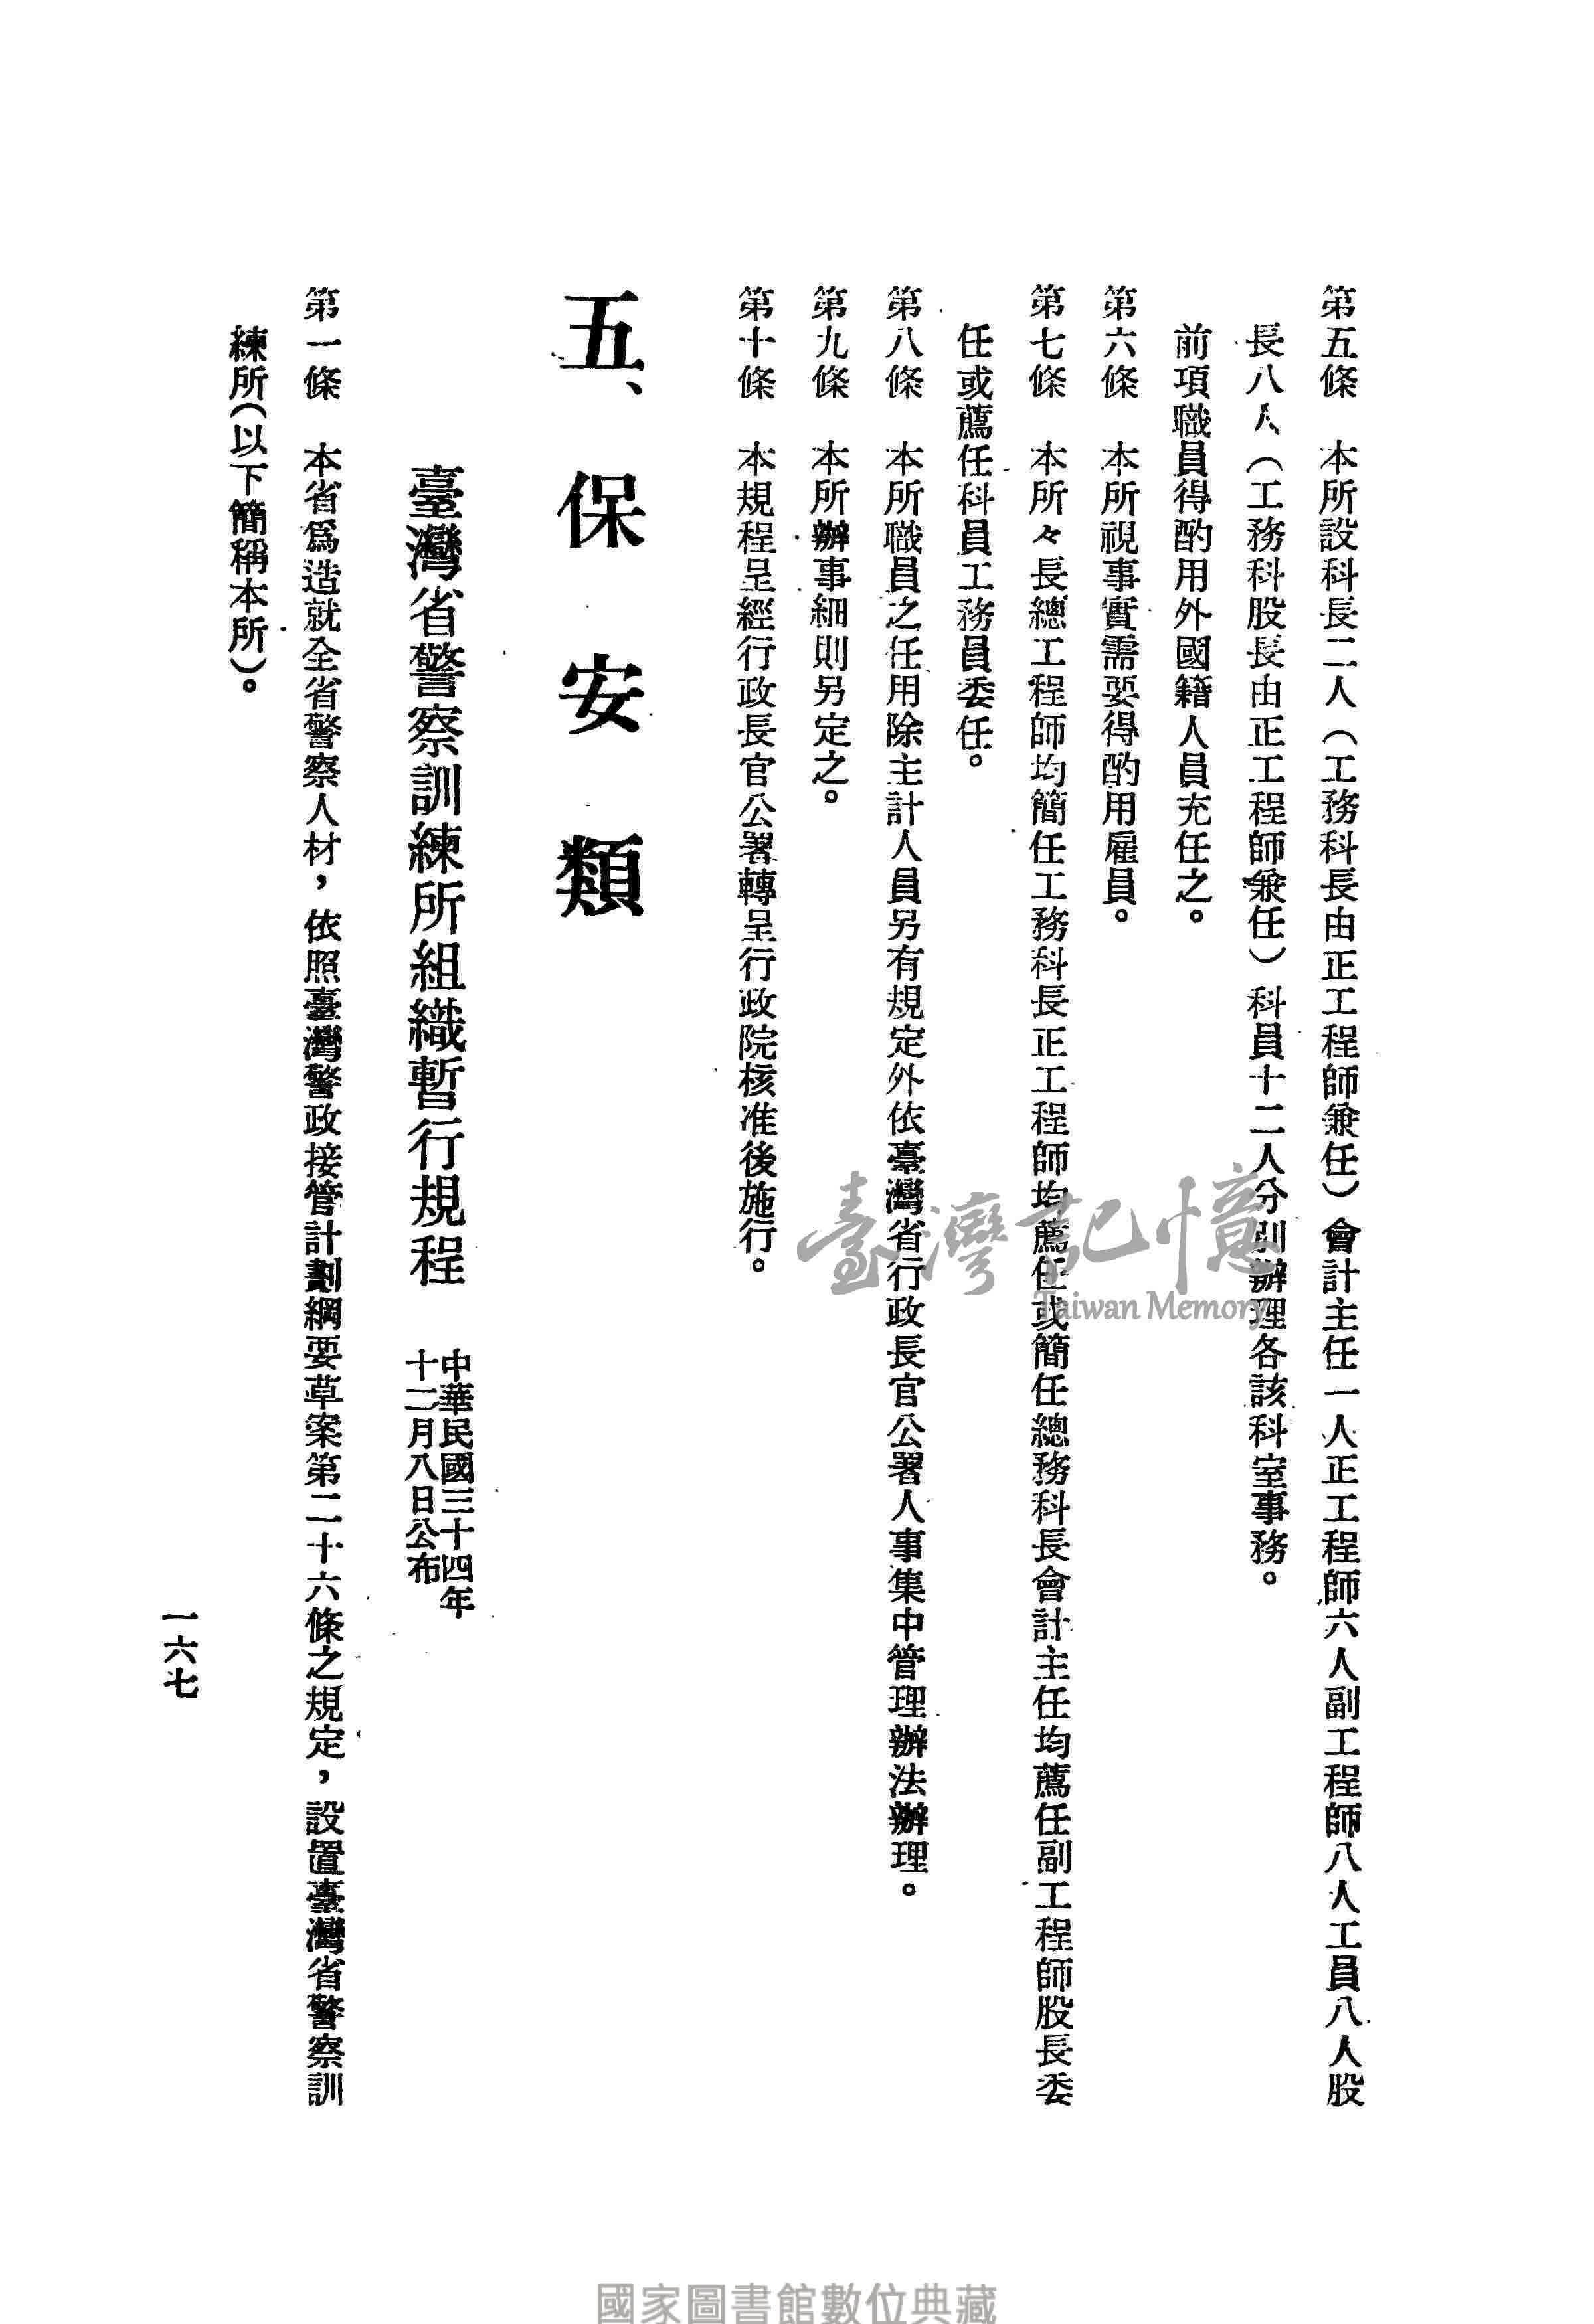 第五條　本所設科長二人（工務科長由正工程師兼任）會計主任一人正工程師六人副工程師八人工員八人股
長八人（工務科股長由正工程師兼任）科員十二人分別辦理各該科室事務。
前項職員得酌用外國籍人員充任之。
第六條　本所視事實需要得酌用雇員。
第七條　本所々長總工程師均簡任工務科長正工程師均薦任或簡任總務科長會計主任均薦任副工程師股長委
任或薦任科員工務員委任。
第八條　本所職員之任用除主計人員另有規定外依臺灣省行政長官公署人事集中管理辦法辦理。
第九條　本所辦事細則另定之。
第十條　本規程呈經行政長官公署轉呈行政院核准後施行。
五、保安類
臺灣省警察訓練所組織暫行規程
中華民國三十四年
十二月八日公布
第一條　本省爲造就全省警察人材，依照臺灣警政接管計劃綱要草案第二十六條之規定，設置臺灣省警察訓
練所（以下簡稱本所）。
一六七
臺灣記憶
Taiwan Memory
國家圖書館數位典藏